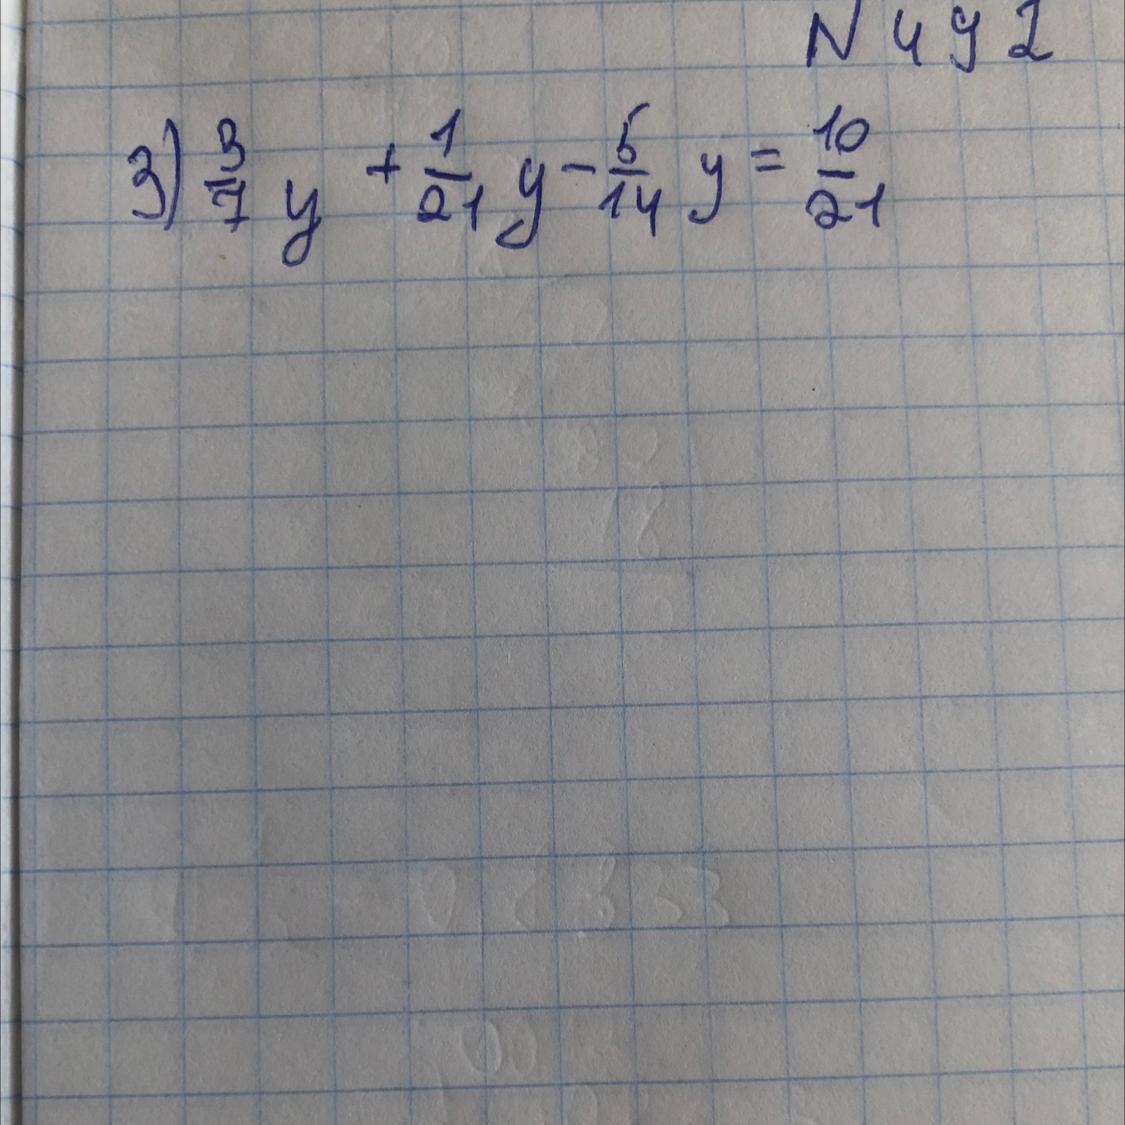 N 492
3) 3/7 y + 1/21 y - 5/14 y = 10/21